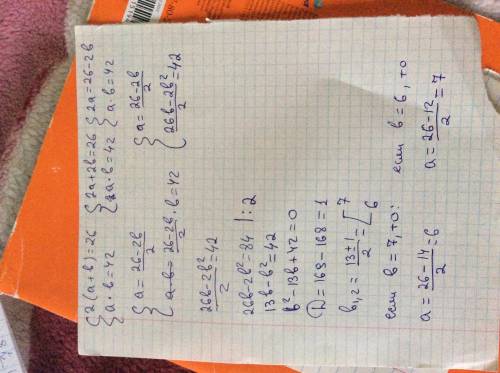 {2(a+b)=26 {2a+2b=26 {2a=26-2b
{a·b=42 {a·b=42 {a·b=42
{a=26-2b/2 {a=26-2b/2
{a·b=26-2b/2·b=42 {26b-2b²/2=42
26b-2b²/2=42
26b-2b²=84 |:2
13b-b²=42
b²-13b+42=0
D=168-168=1
b1,2=13±1/2=[7 6
если b=7, то:
a=26-14/2=6
если b=6, то
a=26-12/2=7